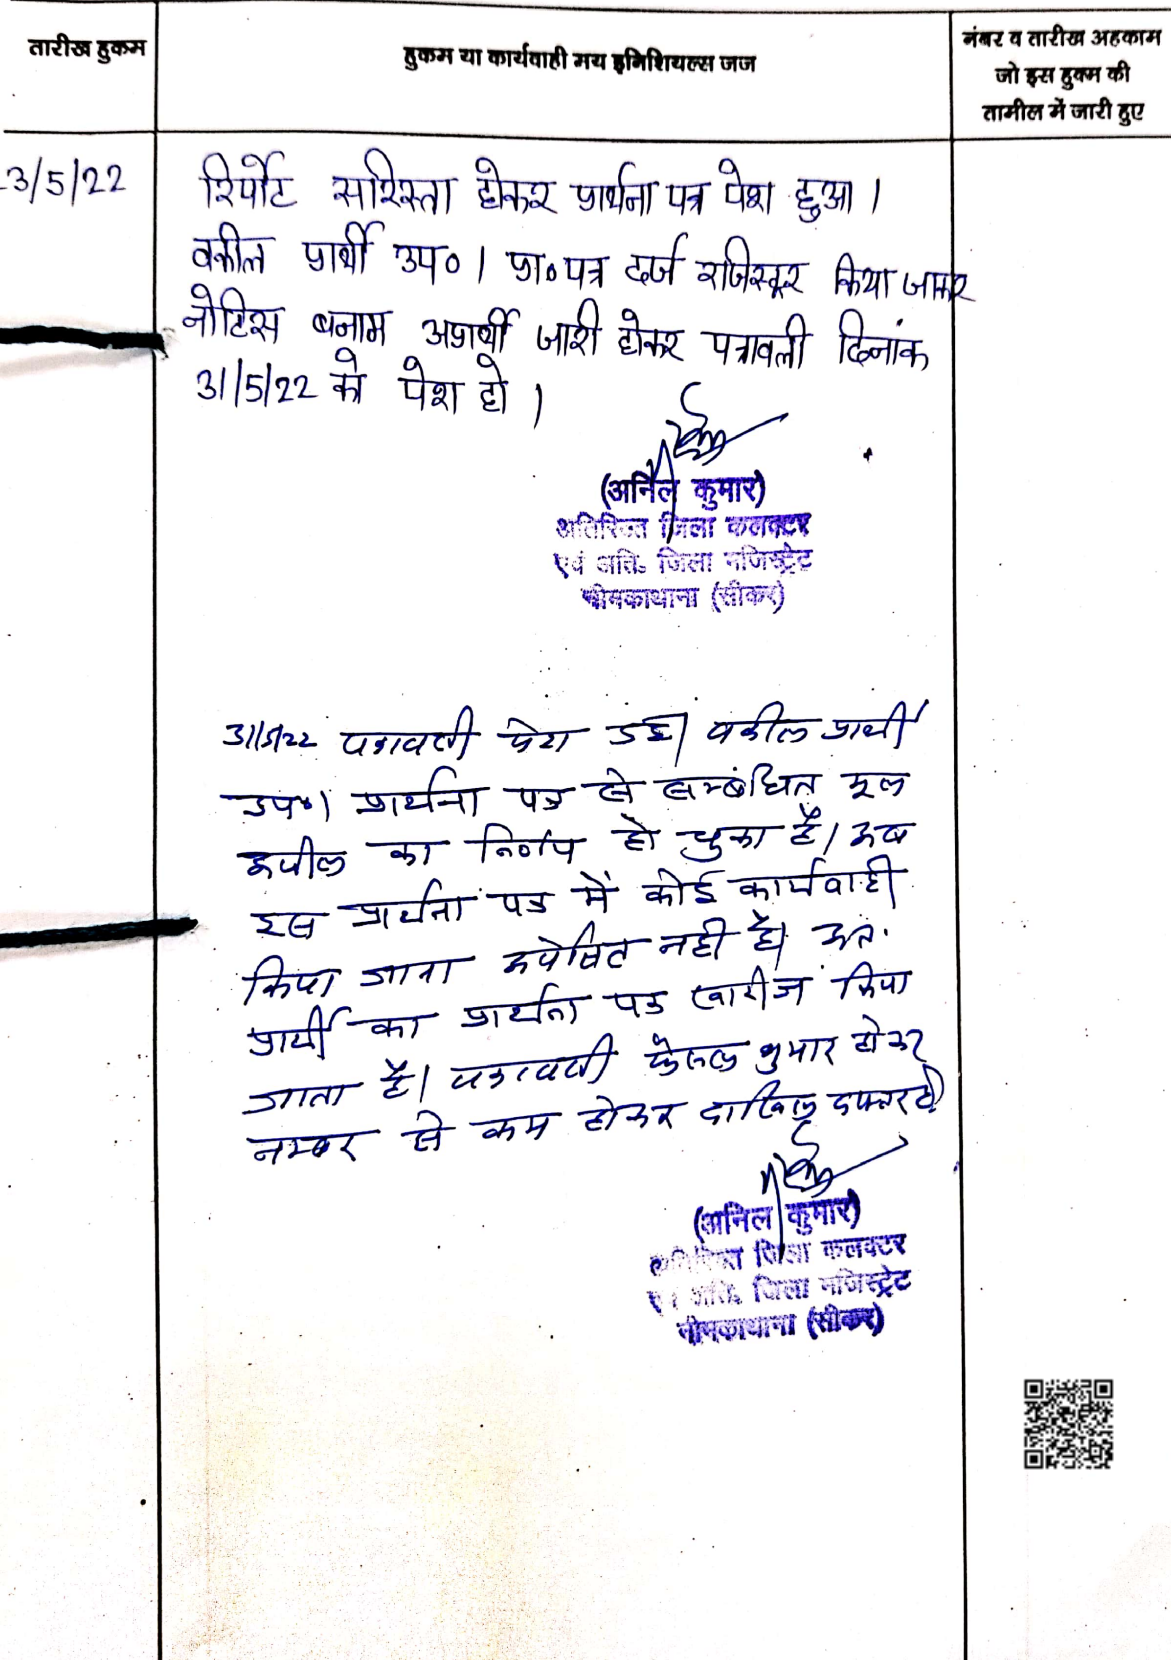 तारीख हुकम
हुकम या कार्यवाही मय इनिशियल्स जज
नंबर व तारीख अहकाम
जो इस हुक्म की
तामील में जारी हुए
3/5/22
रिर्पोट सरिस्ता होकर प्रार्थना पत्र पेश हुआ ।
वकील प्रार्थी उप० । प्रा० पत्र दर्ज रजिस्टर किया जाकर
नोटिस बनाम अप्रार्थी जारी होकर पत्रावली दिनांक
31/5/22 को पेश हो ।
(अनिल कुमार)
अतिरिक्त जिला कलक्टर
एवं अति. जिला मजिस्ट्रेट
नीमकाथाना (सीकर)
31/5/22 पत्रावली पेश हुई। वकील प्रार्थी
उप०। प्रार्थना पत्र से सम्बंधित मूल
अपील का निर्णय हो चुका है। अब
इस प्रार्थना पत्र में कोई कार्यवाही
किया जाना अपेक्षित नही है। अतः
प्रार्थी का प्रार्थना पत्र खारीज किया
जाता है। पत्रावली फैसल शुमार होकर
नम्बर से कम होकर दाखिल दफ्तर हो
(अनिल कुमार)
अतिरिक्त जिला कलक्टर
एवं अति. जिला मजिस्ट्रेट
नीमकाथाना (सीकर)